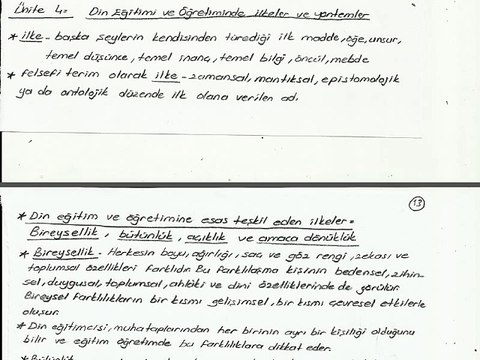 Ünite 4: Din Eğitimi ve Öğretiminde ilkeler ve yöntemler
* ilke - başka şeylerin kendisinden türediği ilk madde, öğe, unsur,
temel düşünce, temel inanç, temel bilgi, öncül, mebde
* Felsefi terim olarak ilke - zamansal, mantıksal, epistomolojik
ya da ontolojik düzende ilk olana verilen ad.
13
* Din eğitim ve öğretimine esas teşkil eden ilkeler =
Bireysellik, bütünlük, açıklık ve amaca dönüklük
* Bireysellik - Herkesin boyu, ağırlığı, saç ve göz rengi, zekası ve
toplumsal özellikleri farklıdır. Bu farklılaşma kişinin bedensel, zihin-
sel, duygusal, toplumsal, ahlaki ve dini özelliklerinde de görülür.
Bireysel farklılıkların bir kısmı gelişimsel, bir kısmı çevresel etkilerle
oluşur.
* Din eğitimcisi, muhataplarından her birinin ayrı bir kişiliği olduğunu
bilir ve eğitim öğretimde bu farklılıklara dikkat eder.
* Bütünlük